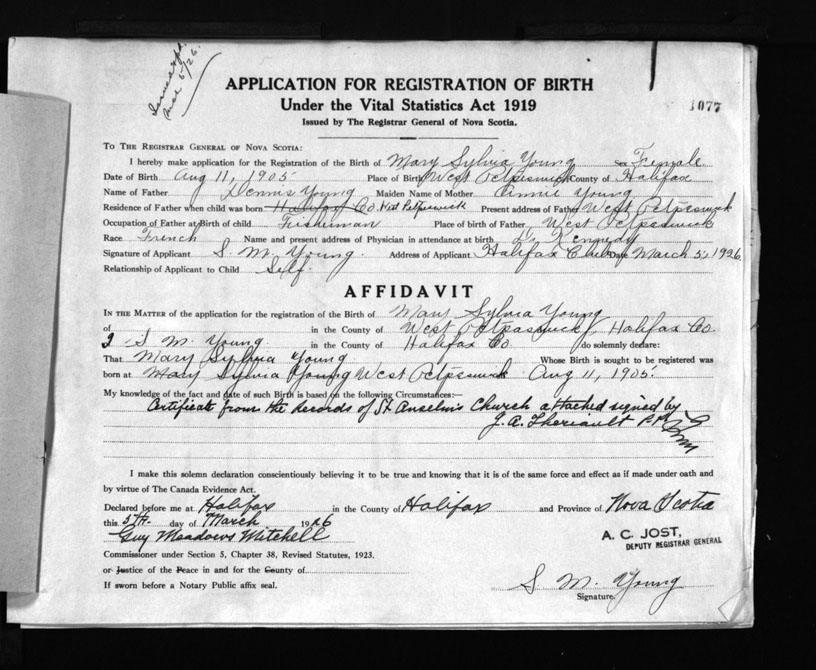 Mar 5/26.
APPLICATION FOR REGISTRATION OF BIRTH
Under the Vital Statistics Act 1919
Issued by The Registrar General of Nova Scotia.
1077
TO THE REGISTRAR GENERAL OF NOVA SCOTIA:
I hereby make application for the Registration of the Birth of Mary Sylvia Young Sex Female
Date of Birth Aug 11, 1905 Place of Birth West Petpeswick County of Halifax
Name of Father Dennis Young Maiden Name of Mother Annie Young
Residence of Father when child was born Halifax Co. West Petpeswick Present address of Father West Petpeswick
Occupation of Father at Birth of child Fisherman Place of birth of Father West Petpeswick
Race French Name and present address of Physician in attendance at birth Dr Kennedy
Signature of Applicant S. M. Young. Address of Applicant Halifax Club Date March 5, 1926
Relationship of Applicant to Child Self.
AFFIDAVIT
IN THE MATTER of the application for the registration of the Birth of Mary Sylvia Young
of in the County of West Petpeswick, Halifax Co.
I S M. Young in the County of Halifax Co. do solemnly declare:
That Mary Sylvia Young Whose Birth is sought to be registered was
born at Mary Sylvia Young West Petpeswick Aug 11, 1905.
My knowledge of the fact and date of such Birth is based on the following Circumstances:—
Certificate from the records of St Anselm's Church attached signed by
J. A. Theriault P.P.
I make this solemn declaration conscientiously believing it to be true and knowing that it is of the same force and effect as if made under oath and
by virtue of The Canada Evidence Act.
Declared before me at Halifax in the County of Halifax and Province of Nova Scotia
this 5th day of March 1926
Guy Meadows Mitchell
A. C. JOST,
DEPUTY REGISTRAR GENERAL
Commissioner under Section 5, Chapter 38, Revised Statutes, 1923.
or Justice of the Peace in and for the County of
If sworn before a Notary Public affix seal.
S M. Young
Signature.